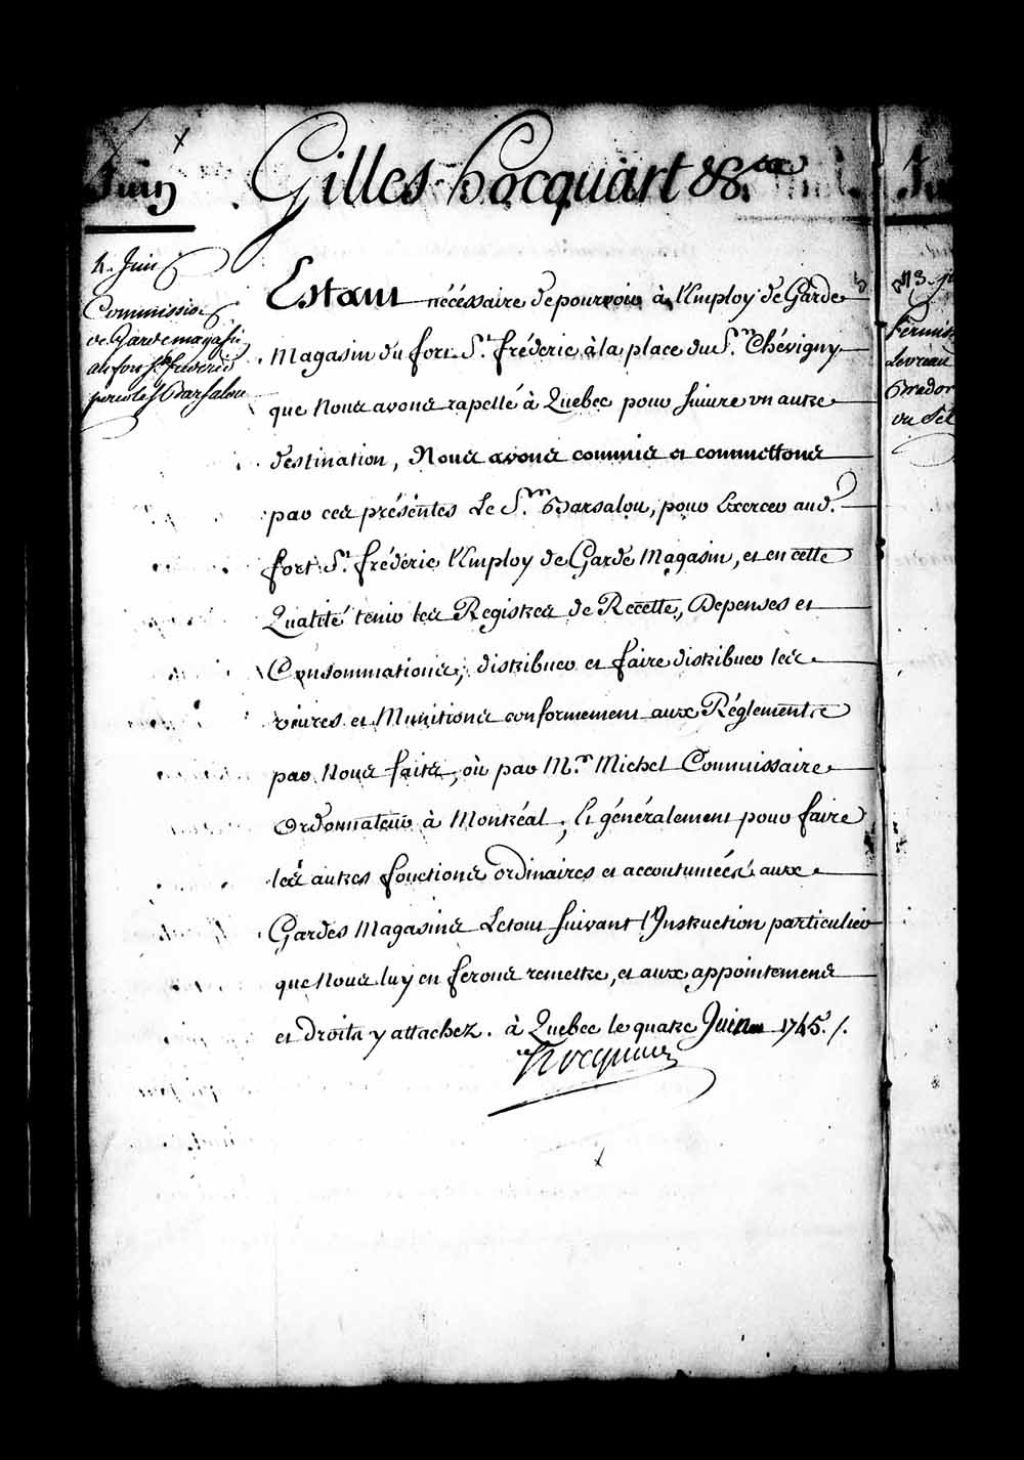 Juin
Gilles hocquart &c.ca
4. Juin
Commission
de Gardemagasin
au fort St. frederic
pour le S Barsalou
Estant nécéssaire de pourvoir à l'Employ de Garde
Magasin du fort St. fréderic à la place du Sr. Chévigny
que Nous avons rapellé à Quebec pour suivre un autre
destination, Nous avons commis et commettons
par ces préséntes Le Sr. Barsalou, pour Exercer aud.
fort St. fréderic l'Employ de Garde Magasin, et en cette
Qualité tenir les Registres de Recette, Depenses et
Consommations; distribuer et faire distribuer les
vivres et Munitions conformement aux Réglements
par Nous faits, où par Mr. Michel Commissaire
Ordonnateur à Montréal; Et généralement pour faire
les autres fonctions ordinaires et accoutumées aux
Gardes Magasins Letout suivant l'Instruction particulier
que Nous luy en ferons remettre, et aux appointemens
et Droits y attachez. à Quebec le quatre Juin 1745./.
Hocquart